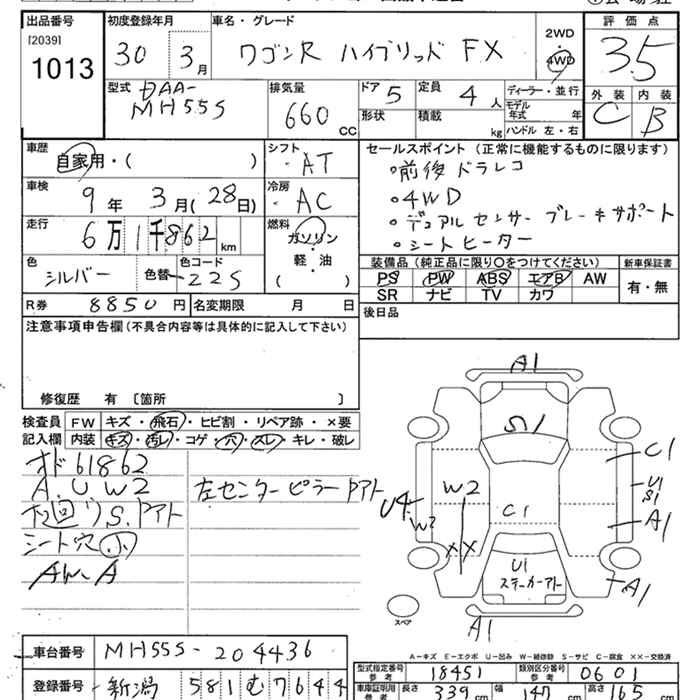 出品番号 初度登録年月 車名・グレード 評価点
[2039]
1013
30年 3月 ワゴンR ハイブリッド FX 2WD 4WD 3.5
型式 DAA-MH55S 排気量 660 CC ドア 5 定員 4人 ディーラー・並行
形状 積載 kg モデル年式 年 ハンドル 左・右
外装 C 内装 B
車歴 自家用・( ) シフト AT
車検 9年 3月(28日) 冷房 AC
走行 6万1千862km 燃料 ガソリン・軽・油 ( )
色 シルバー 色替 色コード Z2S
R券 8850円 名変期限 月 日
セールスポイント(正常に機能するものに限ります)
○前後ドラレコ
○4WD
○デュアルセンサーブレーキサポート
○シートヒーター
装備品(純正品に限り○をつけてください) 新車保証書
PS PW ABS エアB AW 有・無
SR ナビ TV カワ
後日品
注意事項申告欄(不具合内容等は具体的に記入して下さい)
修復歴 有 〔箇所 〕
検査員記入欄 FW キズ・飛石・ヒビ割・リペア跡・×要
内装 キズ・汚レ・コゲ・穴・スレ・キレ・破レ
オド61862
A.U.W2 左センターピラーアト
下回りS.アト
シート穴小
AW.A
A1
S1
C1
U1
S1
A1
W2
U4
W2
C1
XX
U1
ステッカーアト
A1
A1
スペア
A-キズ E-エクボ U-凹ミ W-補修跡 S-サビ C-腐食 ××-交換済
車台番号 MH55S-204436
登録番号 新潟 581 む 7644
型式指定番号 参考 18451 類別区分番号 参考 0601
車庫証明用 参考 長さ 339cm 幅 147cm 高さ 165cm